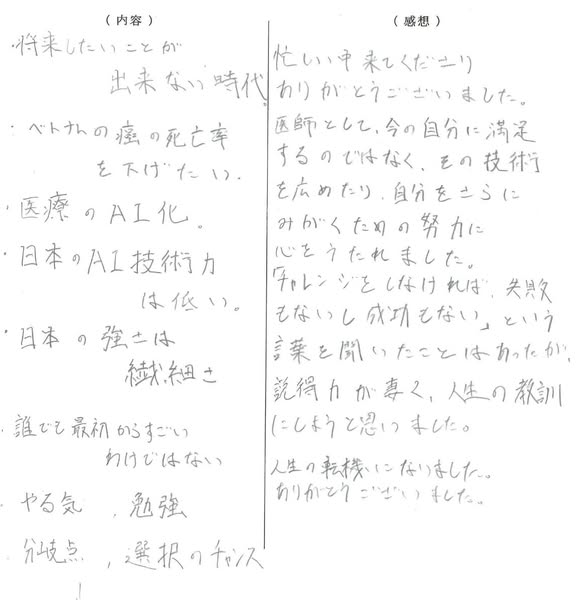 (内容)
・将来したいことが
出来ない時代。
・ベトナムの癌の死亡率
を下げたい。
・医療のAI化。
・日本のAI技術力
は低い。
・日本の強さは
繊細さ
・誰でも最初からすごい
わけではない
・やる気、勉強
・分岐点、選択のチャンス
!
(感想)
忙しい中来てくださり
ありがとうございました。
医師として、今の自分に満足
するのではなく、その技術
を広めたり、自分をさらに
みがくための努力に
心をうたれました。
「チャレンジをしなければ、失敗
もないし成功もない」という
言葉を聞いたことはあったが、
説得力が凄く、人生の教訓
にしようと思いました。
人生の転機になりました。
ありがとうございました。